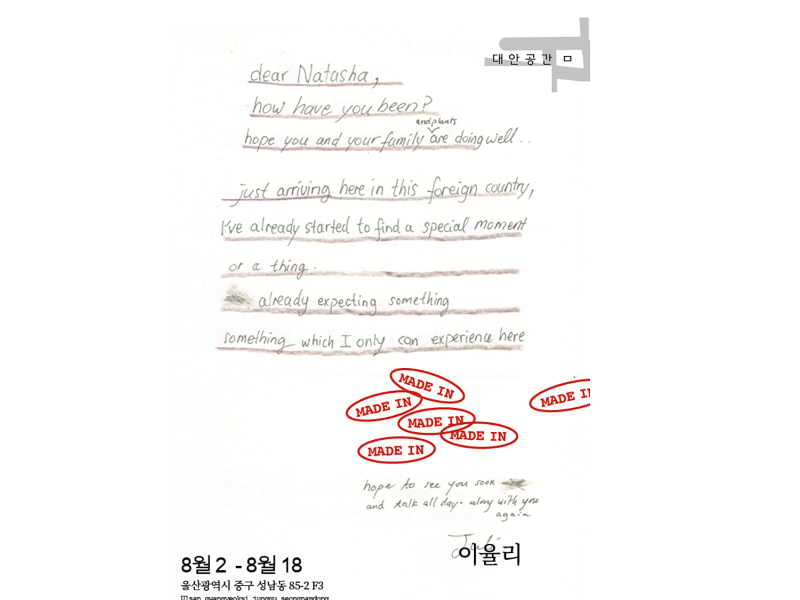 대안공간 ㅁ
dear Natasha,
how have you been?
and plants
hope you and your family are doing well..
just arriving here in this foreign country,
I've already started to find a special moment
or a thing.
already expecting something
something which I only can experience here
MADE IN
MADE IN
MADE IN
MADE IN
MADE IN
MADE IN
hope to see you soon
and talk all day. along with you
again
이율리
8월 2 - 8월 18
울산광역시 중구 성남동 85-2 F3